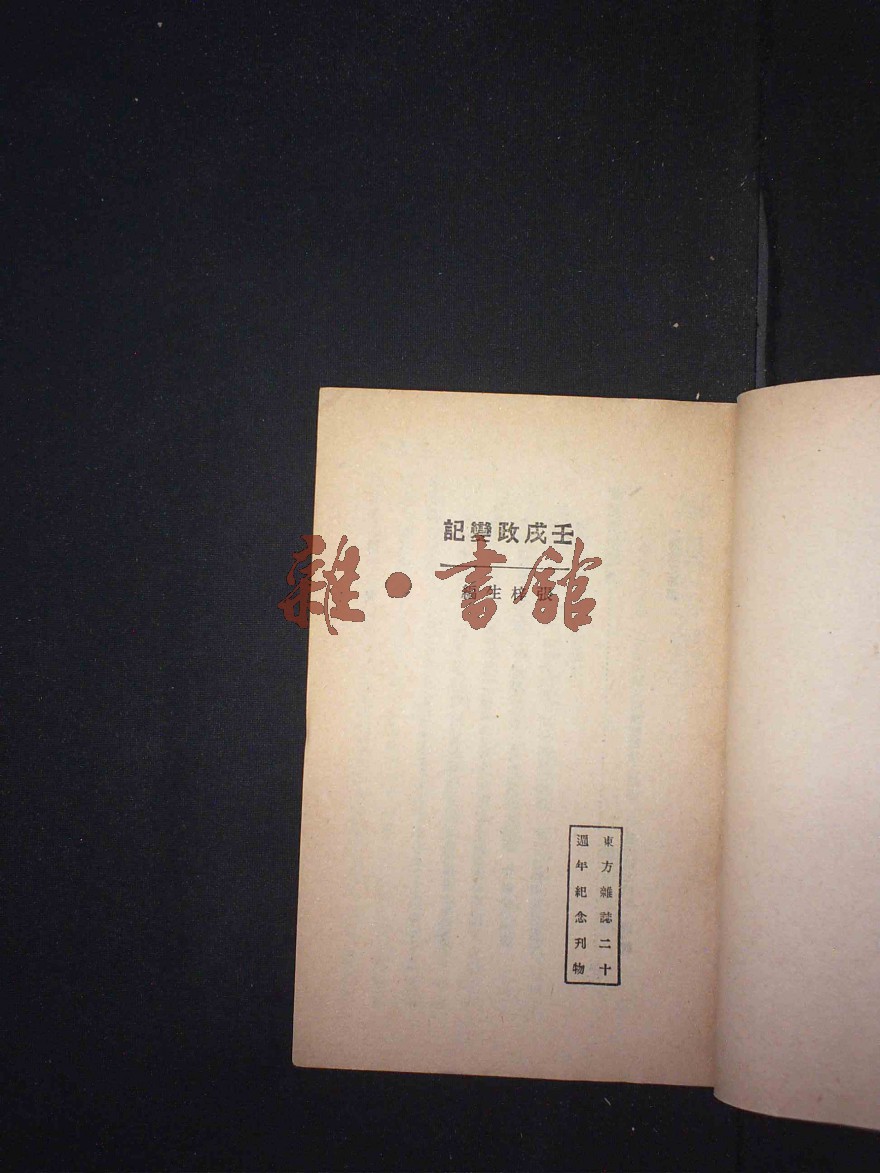 壬戌政變記
張梓生編
雜·書館
東方雜誌二十
週年紀念刊物